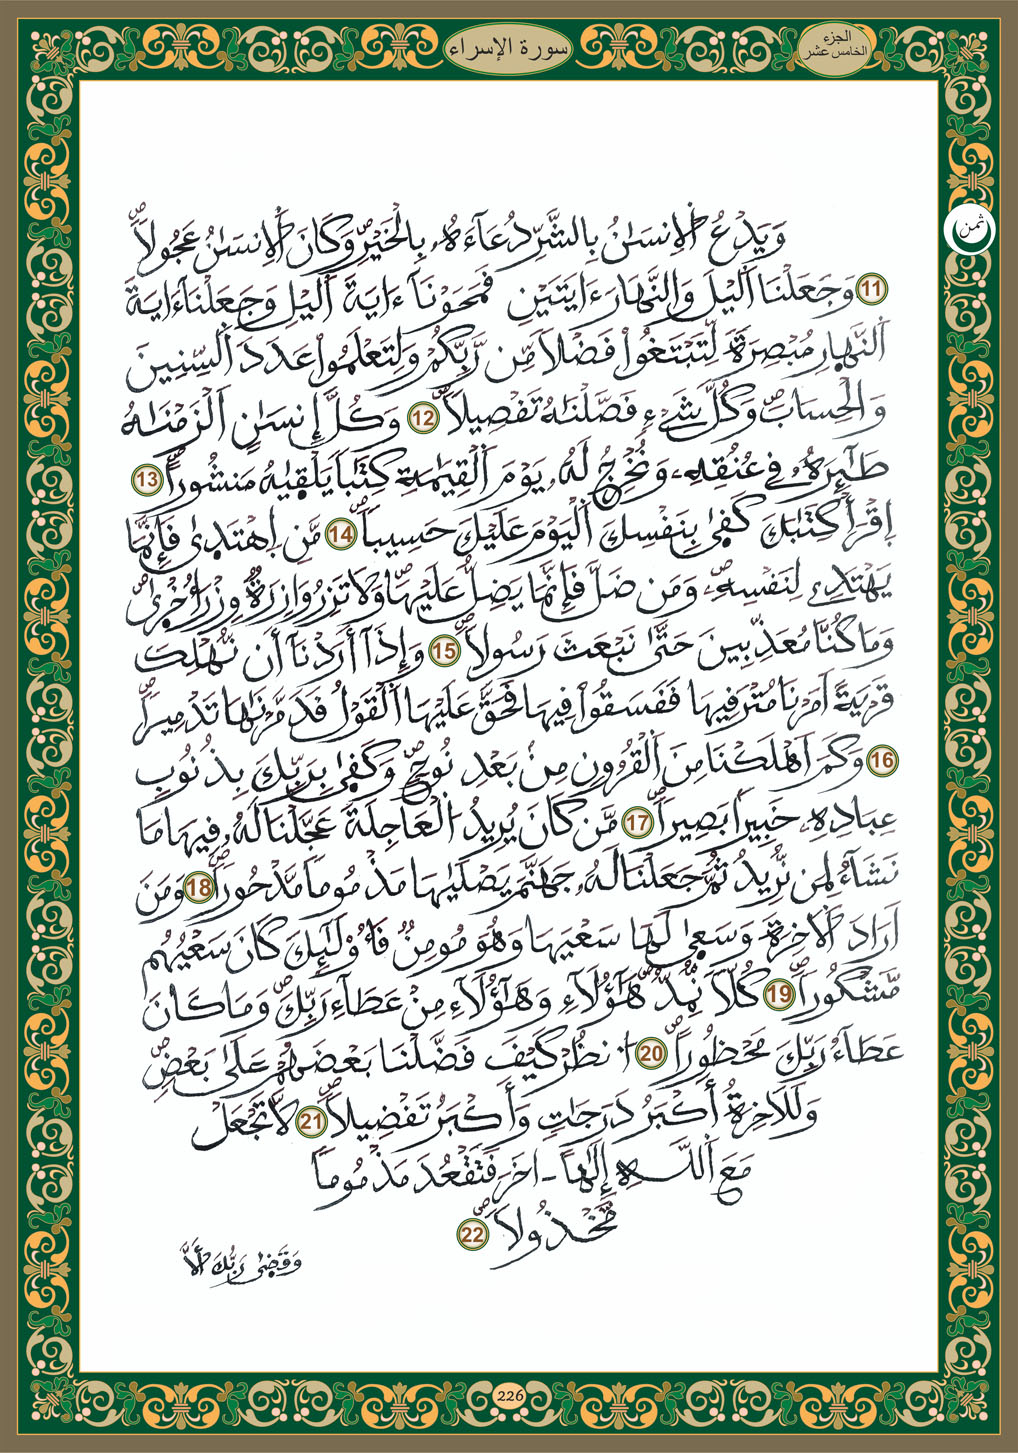 الجزء
الخامس عشر
سورة الإسراء
ثمن
وَيَدْعُ الْإِنسَٰنُ بِالشَّرِّ دُعَآءَهُۥ بِالْخَيْرِۖ وَكَانَ الْإِنسَٰنُ عَجُولاًۖ
11 وَجَعَلْنَا اَليْلَ وَالنَّهَارَ ءَايَتَيْنِ فَمَحَوْنَآ ءَايَةَ اَليْلِ وَجَعَلْنَآ ءَايَةَ
اَلنَّهَارِ مُبْصِرَةً لِّتَبْتَغُواْ فَضْلاً مِّن رَّبِّكُمْ وَلِتَعْلَمُواْ عَدَدَ اَلسِّنِينَ
وَالْحِسَابَۖ وَكُلَّ شَےْءٍ فَصَّلْنَٰهُ تَفْصِيلاًۖ 12 وَكُلَّ إِنسَٰنٍ اَلْزَمْنَٰهُ
طَٰٓئِرَهُۥ فِے عُنُقِهِۦ وَنُخْرِجُ لَهُۥ يَوْمَ اَلْقِيَٰمَةِ كِتَٰباً يَلْقَيٰهُ مَنشُوراًۖ 13
اِقْرَأْ كِتَٰبَكَ كَفَيٰ بِنَفْسِكَ اَلْيَوْمَ عَلَيْكَ حَسِيباًۖ 14 مَّنِ اِهْتَدَيٰ فَإِنَّمَا
يَهْتَدِے لِنَفْسِهِۦۖ وَمَن ضَلَّ فَإِنَّمَا يَضِلُّ عَلَيْهَاۖ وَلَا تَزِرُ وَازِرَةٌ وِزْرَ أُخْرَيٰۖ
وَمَا كُنَّا مُعَذِّبِينَ حَتَّيٰ نَبْعَثَ رَسُولاًۖ 15 وَإِذَآ أَرَدْنَآ أَن نُّهْلِكَ
قَرْيَةً اَمَرْنَا مُتْرَفِيهَا فَفَسَقُواْ فِيهَا فَحَقَّ عَلَيْهَا اَلْقَوْلُ فَدَمَّرْنَٰهَا تَدْمِيراًۖ
16 وَكَمَ اَهْلَكْنَا مِنَ اَلْقُرُونِ مِنۢ بَعْدِ نُوحٍۖ وَكَفَيٰ بِرَبِّكَ بِذُنُوبِ
عِبَادِهِۦ خَبِيراَۢ بَصِيراًۖ 17 مَّن كَانَ يُرِيدُ اَلْعَاجِلَةَ عَجَّلْنَا لَهُۥ فِيهَا مَا
نَشَآءُ لِمَن نُّرِيدُ ثُمَّ جَعَلْنَا لَهُۥ جَهَنَّمَ يَصْلَيٰهَا مَذْمُوماً مَّدْحُوراًۖ 18 وَمَنَ
اَرَادَ اَلْآخِرَةَ وَسَعَيٰ لَهَا سَعْيَهَا وَهُوَ مُومِنٌ فَأُوْلَٰٓئِكَ كَانَ سَعْيُهُم
مَّشْكُوراًۖ 19 كُلّاً نُّمِدُّ هَٰٓؤُلَآءِ وَهَٰٓؤُلَآءِ مِنْ عَطَآءِ رَبِّكَۖ وَمَا كَانَ
عَطَآءُ رَبِّكَ مَحْظُوراًۖ 20 اُنظُرْ كَيْفَ فَضَّلْنَا بَعْضَهُمْ عَلَيٰ بَعْضٍۖ
وَلَلْآخِرَةُ أَكْبَرُ دَرَجَٰتٍ وَأَكْبَرُ تَفْضِيلاًۖ 21 لَّا تَجْعَلْ
مَعَ اَللَّهِ إِلَٰهاً ـ اخَرَ فَتَقْعُدَ مَذْمُوماً
مَّخْذُولاًۖ 22
وَقَضَيٰ رَبُّكَ أَلَّا
226